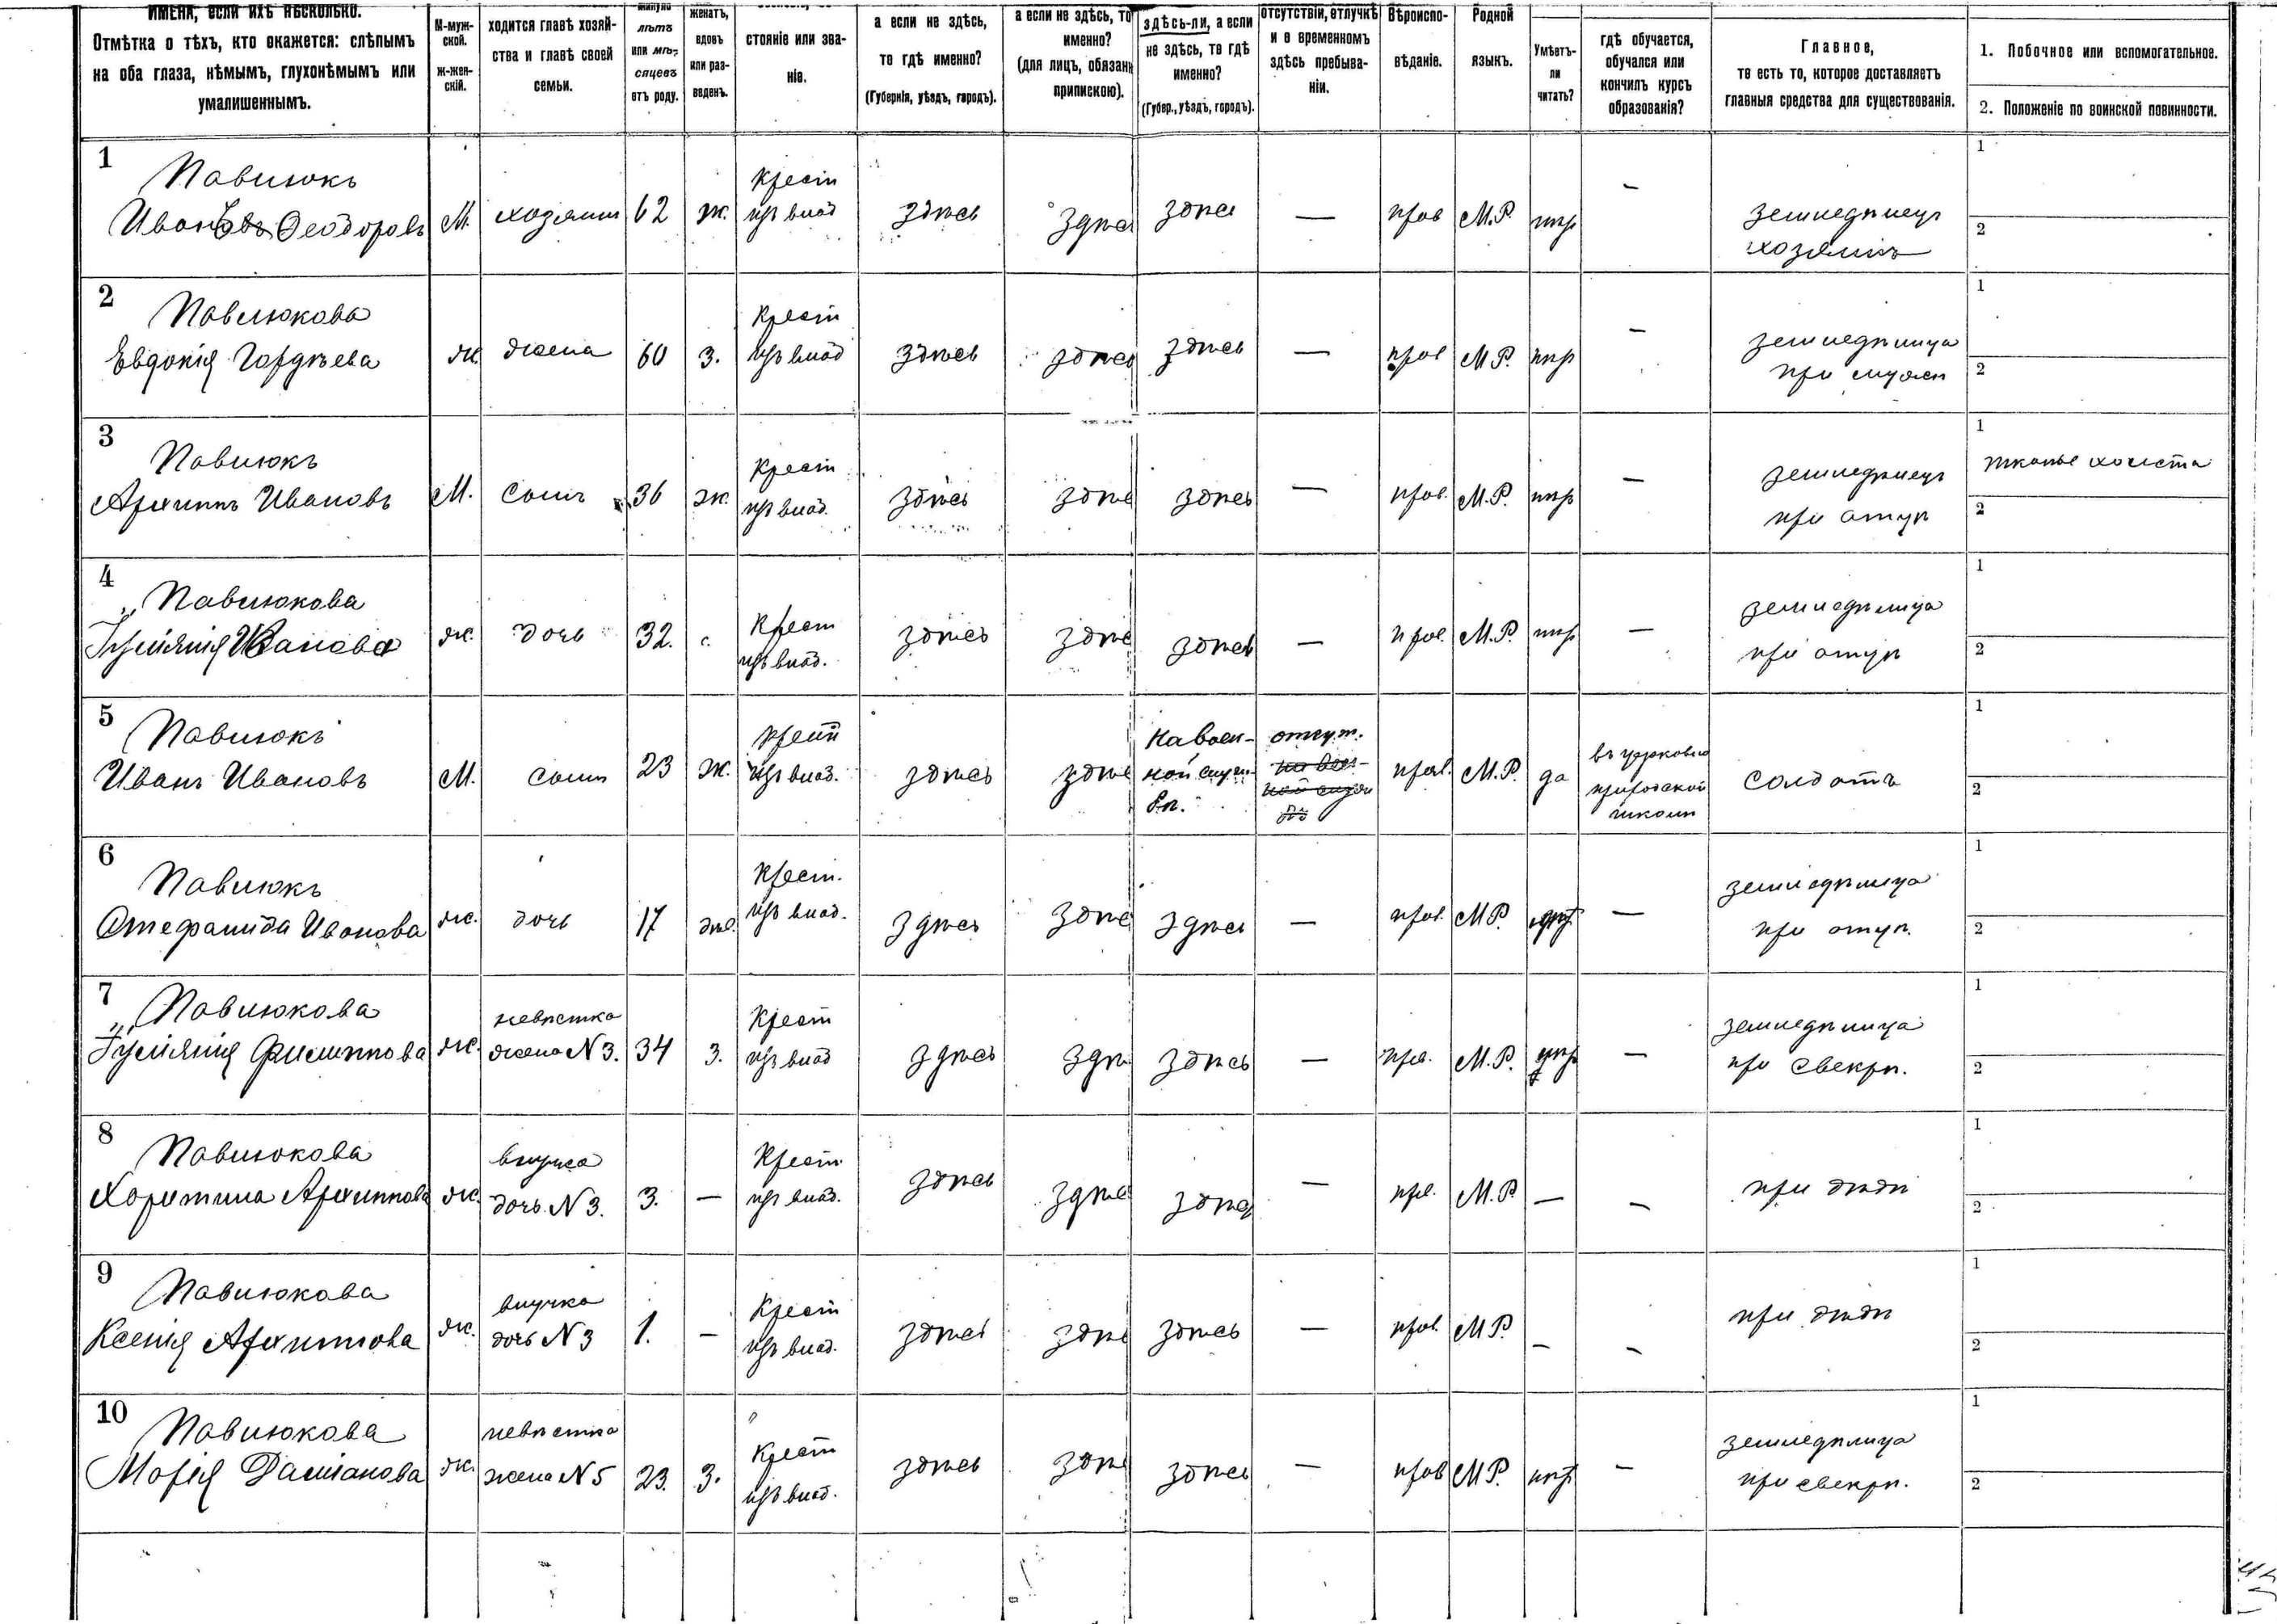 ИМЕНА, если ихъ нѣсколько.
Отмѣтка о тѣхъ, кто окажется: слѣпымъ
на оба глаза, нѣмымъ, глухонѣмымъ или
умалишеннымъ.
М-муж-
ской.
Ж-жен-
скій.
ходится главѣ хозяй-
ства и главѣ своей
семьи.
минуло
лѣтъ
или мѣ-
сяцевъ
отъ роду.
женатъ,
вдовъ
или раз-
веденъ.
стояніе или зва-
ніе.
а если не здѣсь,
то гдѣ именно?
(Губернія, уѣздъ, городъ).
а если не здѣсь, то
именно?
(для лицъ, обязанн
припискою).
здѣсь-ли, а если
не здѣсь, то гдѣ
именно?
(Губер., уѣздъ, городъ).
отсутствіи, отлучкѣ
и о временномъ
здѣсь пребыва-
ніи.
Вѣроиспо-
вѣданіе.
Родной
языкъ.
Умѣетъ-
ли
читать?
гдѣ обучается,
обучался или
кончилъ курсъ
образованія?
Главное,
то есть то, которое доставляетъ
главныя средства для существованія.
1. Побочное или вспомогательное.
2. Положеніе по воинской повинности.
1
Павлюкъ
Иванъ Феодоровъ
М.
хозяинъ
62
ж.
Крест
изъ влад
здѣсь
здѣсь
здѣсь
—
прав
М.Р.
нѣт
—
земледѣлецъ
хозяинъ
1
2
2
Павлюкова
Евдокія Гордѣева
ж.
жена
60
з.
Крест
изъ влад
здѣсь
здѣсь
здѣсь
—
прав
М.Р.
нѣт
—
земледѣлица
при мужѣ
1
2
3
Павлюкъ
Архипъ Ивановъ
М.
сынъ
36
ж.
Крест
изъ влад.
здѣсь
здѣс
здѣсь
—
прав.
М.Р.
нѣт
—
земледѣлецъ
при отцѣ
1
тканье холста
2
4
Павлюкова
Иванова
ж.
дочь
32.
Крест
изъ влад.
здѣсь
здѣс
здѣсь
—
прав.
М.Р.
нѣт
—
земледѣлица
при отцѣ
1
2
5
Павлюкъ
Иванъ Ивановъ
М.
сынъ
23
ж.
Крест
изъ влад.
здѣсь
здѣс
На воен-
ной служ-
бѣ.
отсут.
на воен-
ной служ
бѣ
прав.
М.Р.
да
въ церковно
приходской
школѣ
солдатъ
1
2
6
Павлюкъ
Стефанида Иванова
ж.
дочь
17
дѣв.
Крест.
изъ влад.
здѣсь
здѣс
здѣсь
—
прав.
М.Р.
нѣт
—
земледѣлица
при отцѣ.
1
2
7
Павлюкова
Филиппова
ж.
невѣстка
жена N 3.
34
з.
Крест
изъ влад
здѣсь
здѣ
здѣсь
—
прв.
М.Р.
нѣт
—
земледѣлица
при свекрѣ.
1
2
8
Павлюкова
Харитина Архиппова
ж.
внучка
дочь N 3.
3.
—
Крест
изъ влад.
здѣсь
здѣс
здѣсь
—
прв.
М.Р.
—
—
при дѣдѣ
1
2
9
Павлюкова
Ксенія Архиппова
ж.
внучка
дочь N 3
1.
—
Крест
изъ влад.
здѣсь
здѣс
здѣсь
—
прав.
М.Р.
—
—
при дѣдѣ
1
2
10
Павлюкова
Марія Даміанова
ж.
невѣстка
жена N 5
23.
з.
Крест
изъ влад.
здѣсь
здѣс
здѣсь
—
прав
М.Р.
нѣт
—
земледѣлица
при свекрѣ.
1
2